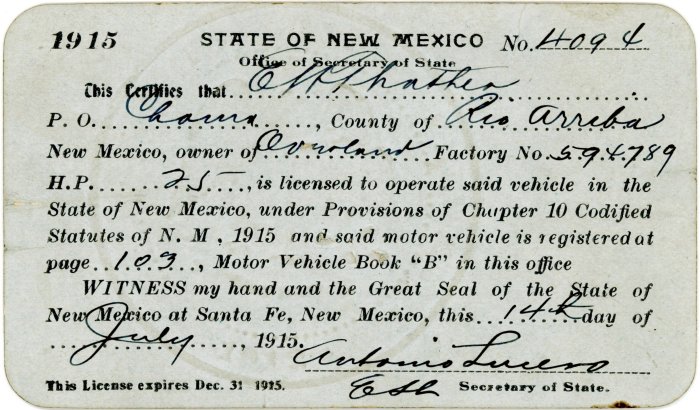 1915 STATE OF NEW MEXICO No. 4094
Office of Secretary of State
This Certifies that
P. O. Chama, County of Rio Arriba
New Mexico, owner of Overland Factory No. 594789
H.P. 25, is licensed to operate said vehicle in the
State of New Mexico, under Provisions of Chapter 10 Codified
Statutes of N. M, 1915 and said motor vehicle is registered at
page 103, Motor Vehicle Book "B" in this office
WITNESS my hand and the Great Seal of the State of
New Mexico at Santa Fe, New Mexico, this 14th day of
July, 1915.
Antonio Lucero
This License expires Dec. 31 1915. Secretary of State.